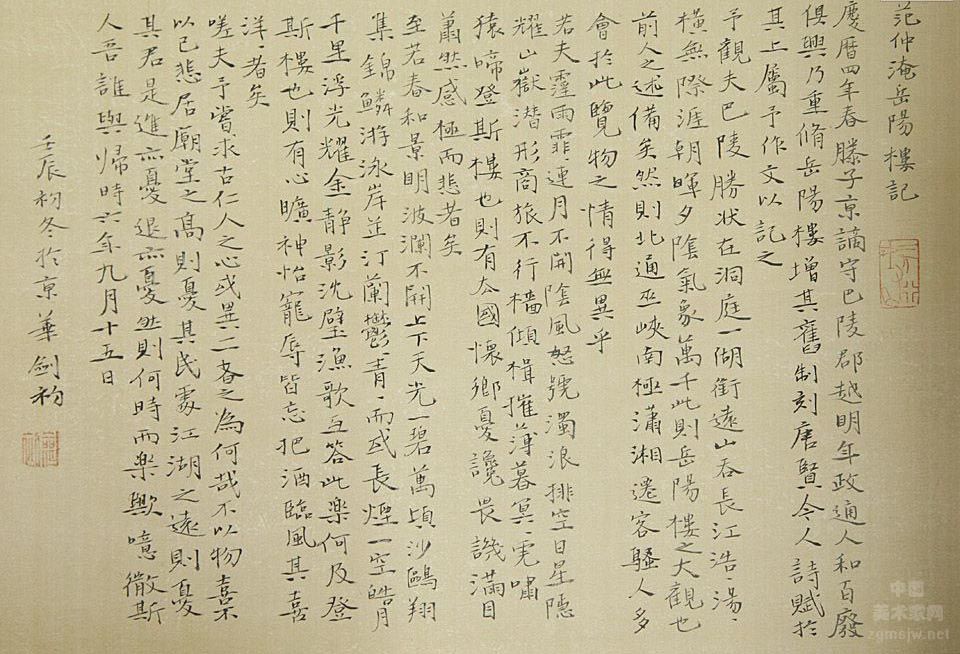 范仲淹岳陽樓記
慶曆四年春滕子京謫守巴陵郡越明年政通人和百廢
俱興乃重脩岳陽樓增其舊制刻唐賢今人詩賦於
其上屬予作文以記之
予觀夫巴陵勝狀在洞庭一湖銜遠山吞長江浩〻湯〻
橫無際涯朝暉夕陰氣象萬千此則岳陽樓之大觀也
前人之述備矣然則北通巫峽南極瀟湘遷客騷人多
會於此覽物之情得無異乎
若夫霪雨霏〻連月不開陰風怒號濁浪排空日星隱
耀山嶽潛形商旅不行檣傾楫摧薄暮冥〻虎嘯
猿啼登斯樓也則有去國懷鄉憂讒畏譏滿目
蕭然感極而悲者矣
至若春和景明波瀾不開上下天光一碧萬頃沙鷗翔
集錦鱗游泳岸芷汀蘭鬱〻青〻而或長煙一空皓月
千里浮光耀金靜影沈璧漁歌互答此樂何及登
斯樓也則有心曠神怡寵辱皆忘把酒臨風其喜
洋〻者矣
嗟夫予嘗求古仁人之心或異二者之為何哉不以物喜不
以己悲居廟堂之高則憂其民處江湖之遠則憂
其君是進亦憂退亦憂然則何時而樂歟噫微斯
人吾誰與歸時六年九月十五日
壬辰初冬於京華劍初
中国
美术家网
zgmsjw.net